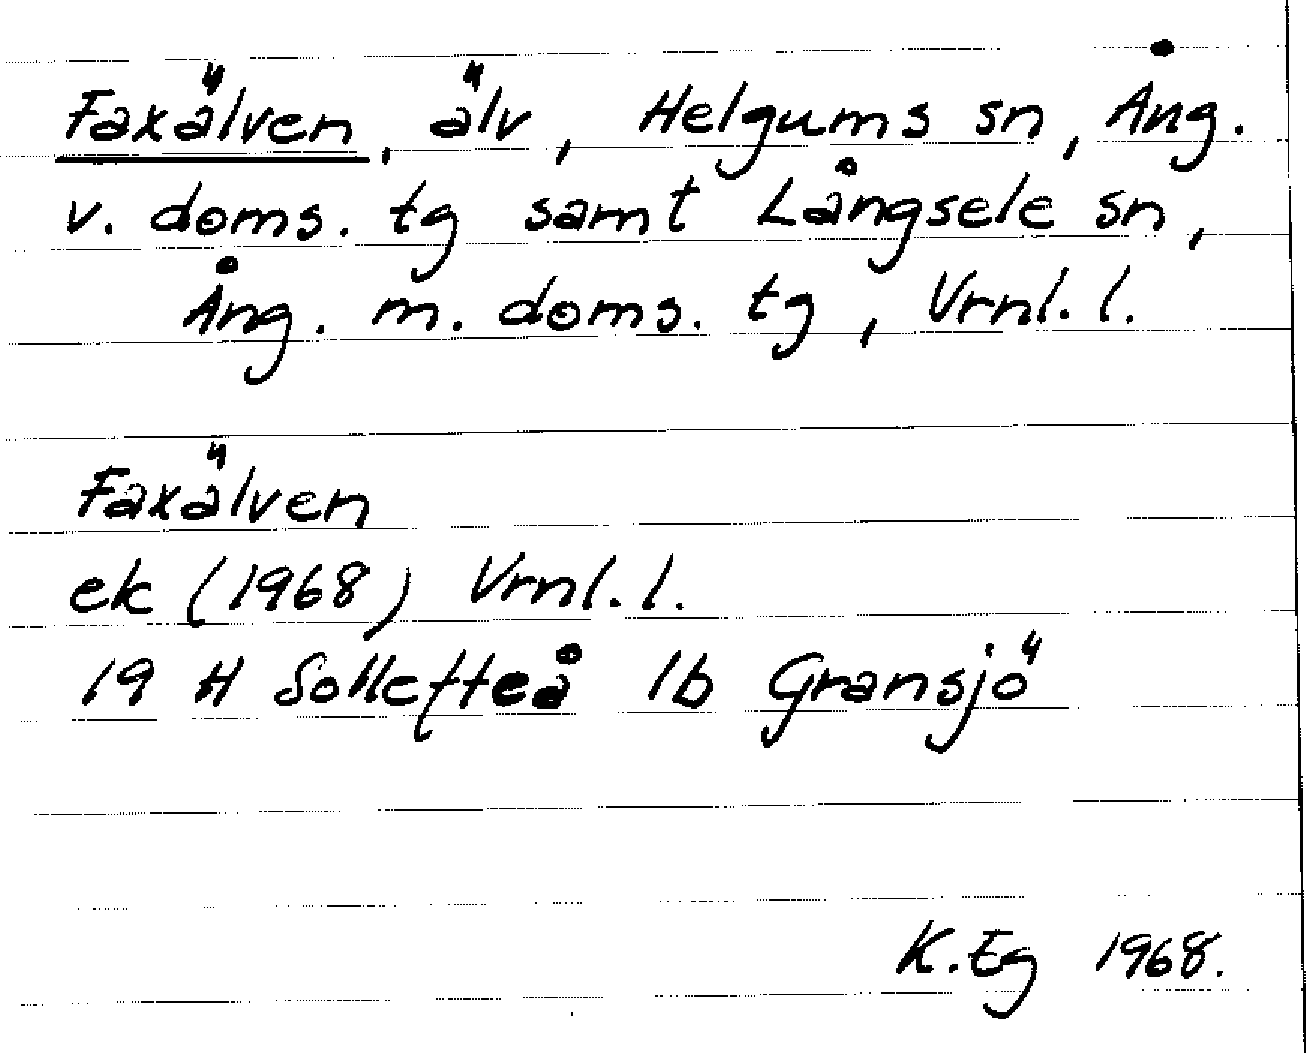 Faxälven, älv, Helgums sn, Ång.
v. doms. tg samt Långsele sn,
Ång. m. doms. tg, Vrnl. l.
Faxälven
ek (1968) Vrnl. l.
19 H Sollefteå 1b Gransjö
K.Eg 1968.